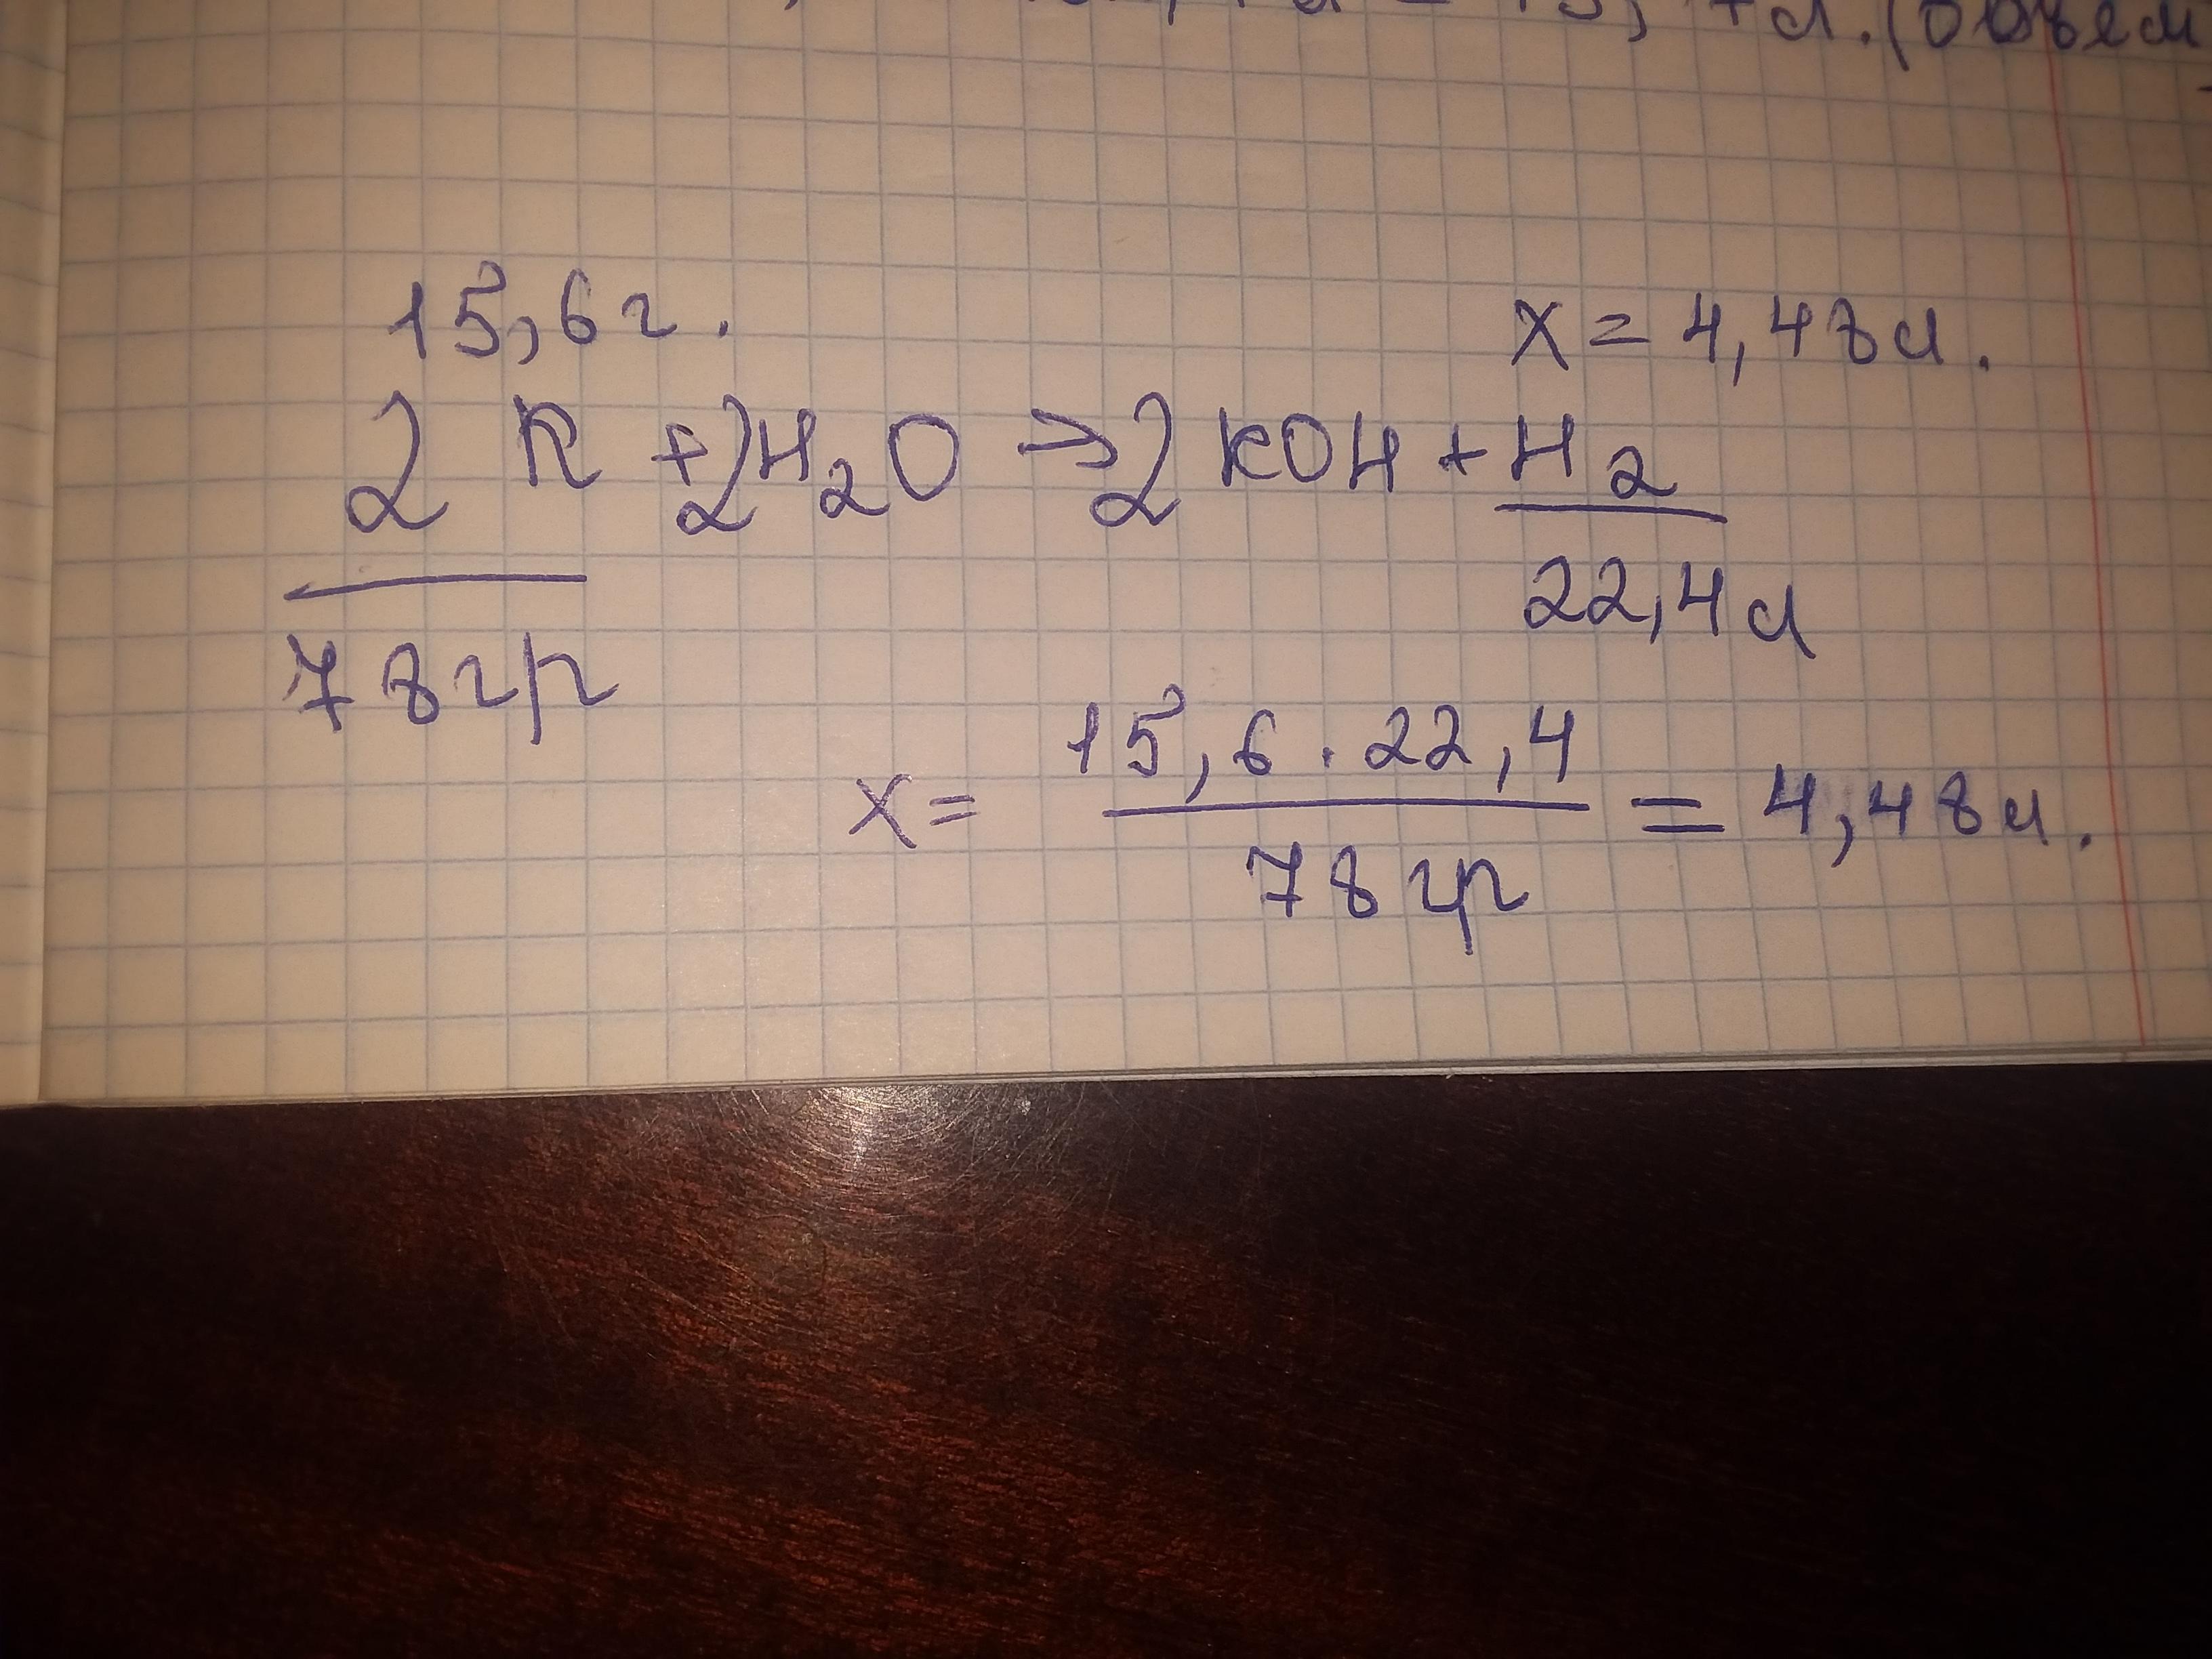 (объем
15,6 г. x = 4,48 л.
2 K + 2H₂O → 2 KOH + H₂
78 гр 22,4 л
15,6 · 22,4
x = = 4,48 л.
78 гр